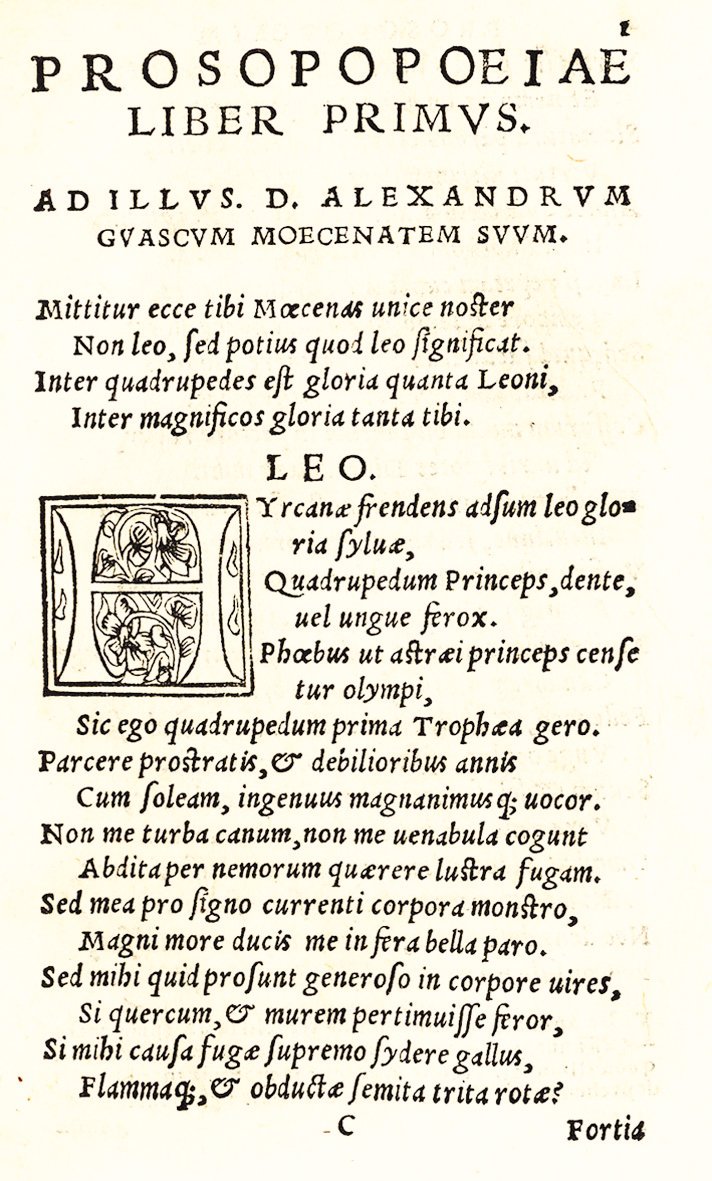 1
PROSOPOPOEIAE
LIBER PRIMVS.
AD ILLVS. D. ALEXANDRVM
GVASCVM MOECENATEM SVVM.
Mittitur ecce tibi Mœcenas unice noſter
Non leo, ſed potius quod leo ſignificat.
Inter quadrupedes eſt gloria quanta Leoni,
Inter magnificos gloria tanta tibi.
LEO.
HYrcanæ frendens adſum leo glo-
ria ſyluæ,
Quadrupedum Princeps, dente,
uel ungue ferox.
Phœbus ut aſtræi princeps cenſe
tur olympi,
Sic ego quadrupedum prima Trophæa gero.
Parcere proſtratis, & debilioribus annis
Cum ſoleam, ingenuus magnanimusq; uocor.
Non me turba canum, non me uenabula cogunt
Abdita per nemorum quærere luſtra fugam.
Sed mea pro ſigno currenti corpora monſtro,
Magni more ducis me in fera bella paro.
Sed mihi quid proſunt generoſo in corpore uires,
Si quercum, & murem pertimuiſſe feror,
Si mihi cauſa fugæ ſupremo ſydere gallus,
Flammaq;, & obductæ ſemita trita rotæ?
C Fortia